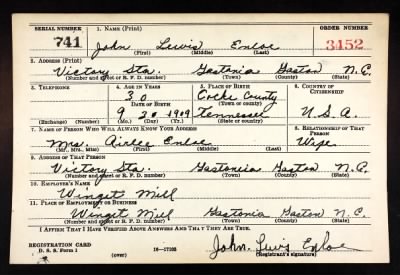 SERIAL NUMBER
1. NAME (Print)
ORDER NUMBER
741
John Lewis Enloe
3452
(First) (Middle) (Last)
2. ADDRESS (Print)
Victory Sta. Gastonia Gaston N.C.
(Number and street or R. F. D. number) (Town) (County) (State)
3. TELEPHONE
4. AGE IN YEARS
5. PLACE OF BIRTH
6. COUNTRY OF CITIZENSHIP
30
Cocke County
DATE OF BIRTH
(Town or county)
9 20 1909
Tennessee
U.S.A.
(Exchange) (Number)
(Mo.) (Day) (Yr.)
(State or country)
7. NAME OF PERSON WHO WILL ALWAYS KNOW YOUR ADDRESS
8. RELATIONSHIP OF THAT PERSON
Mrs. Airlee Enloe
Wife
(Mr., Mrs., Miss) (First) (Middle) (Last)
9. ADDRESS OF THAT PERSON
Victory Sta. Gastonia Gaston N.C.
(Number and street or R. F. D. number) (Town) (County) (State)
10. EMPLOYER'S NAME
Winget Mill
11. PLACE OF EMPLOYMENT OR BUSINESS
Winget Mill Gastonia Gaston N.C.
(Number and street or R. F. D. number) (Town) (County) (State)
I AFFIRM THAT I HAVE VERIFIED ABOVE ANSWERS AND THAT THEY ARE TRUE.
John Lewis Enloe
REGISTRATION CARD
D. S. S. Form 1
16—17105
(Registrant's signature)